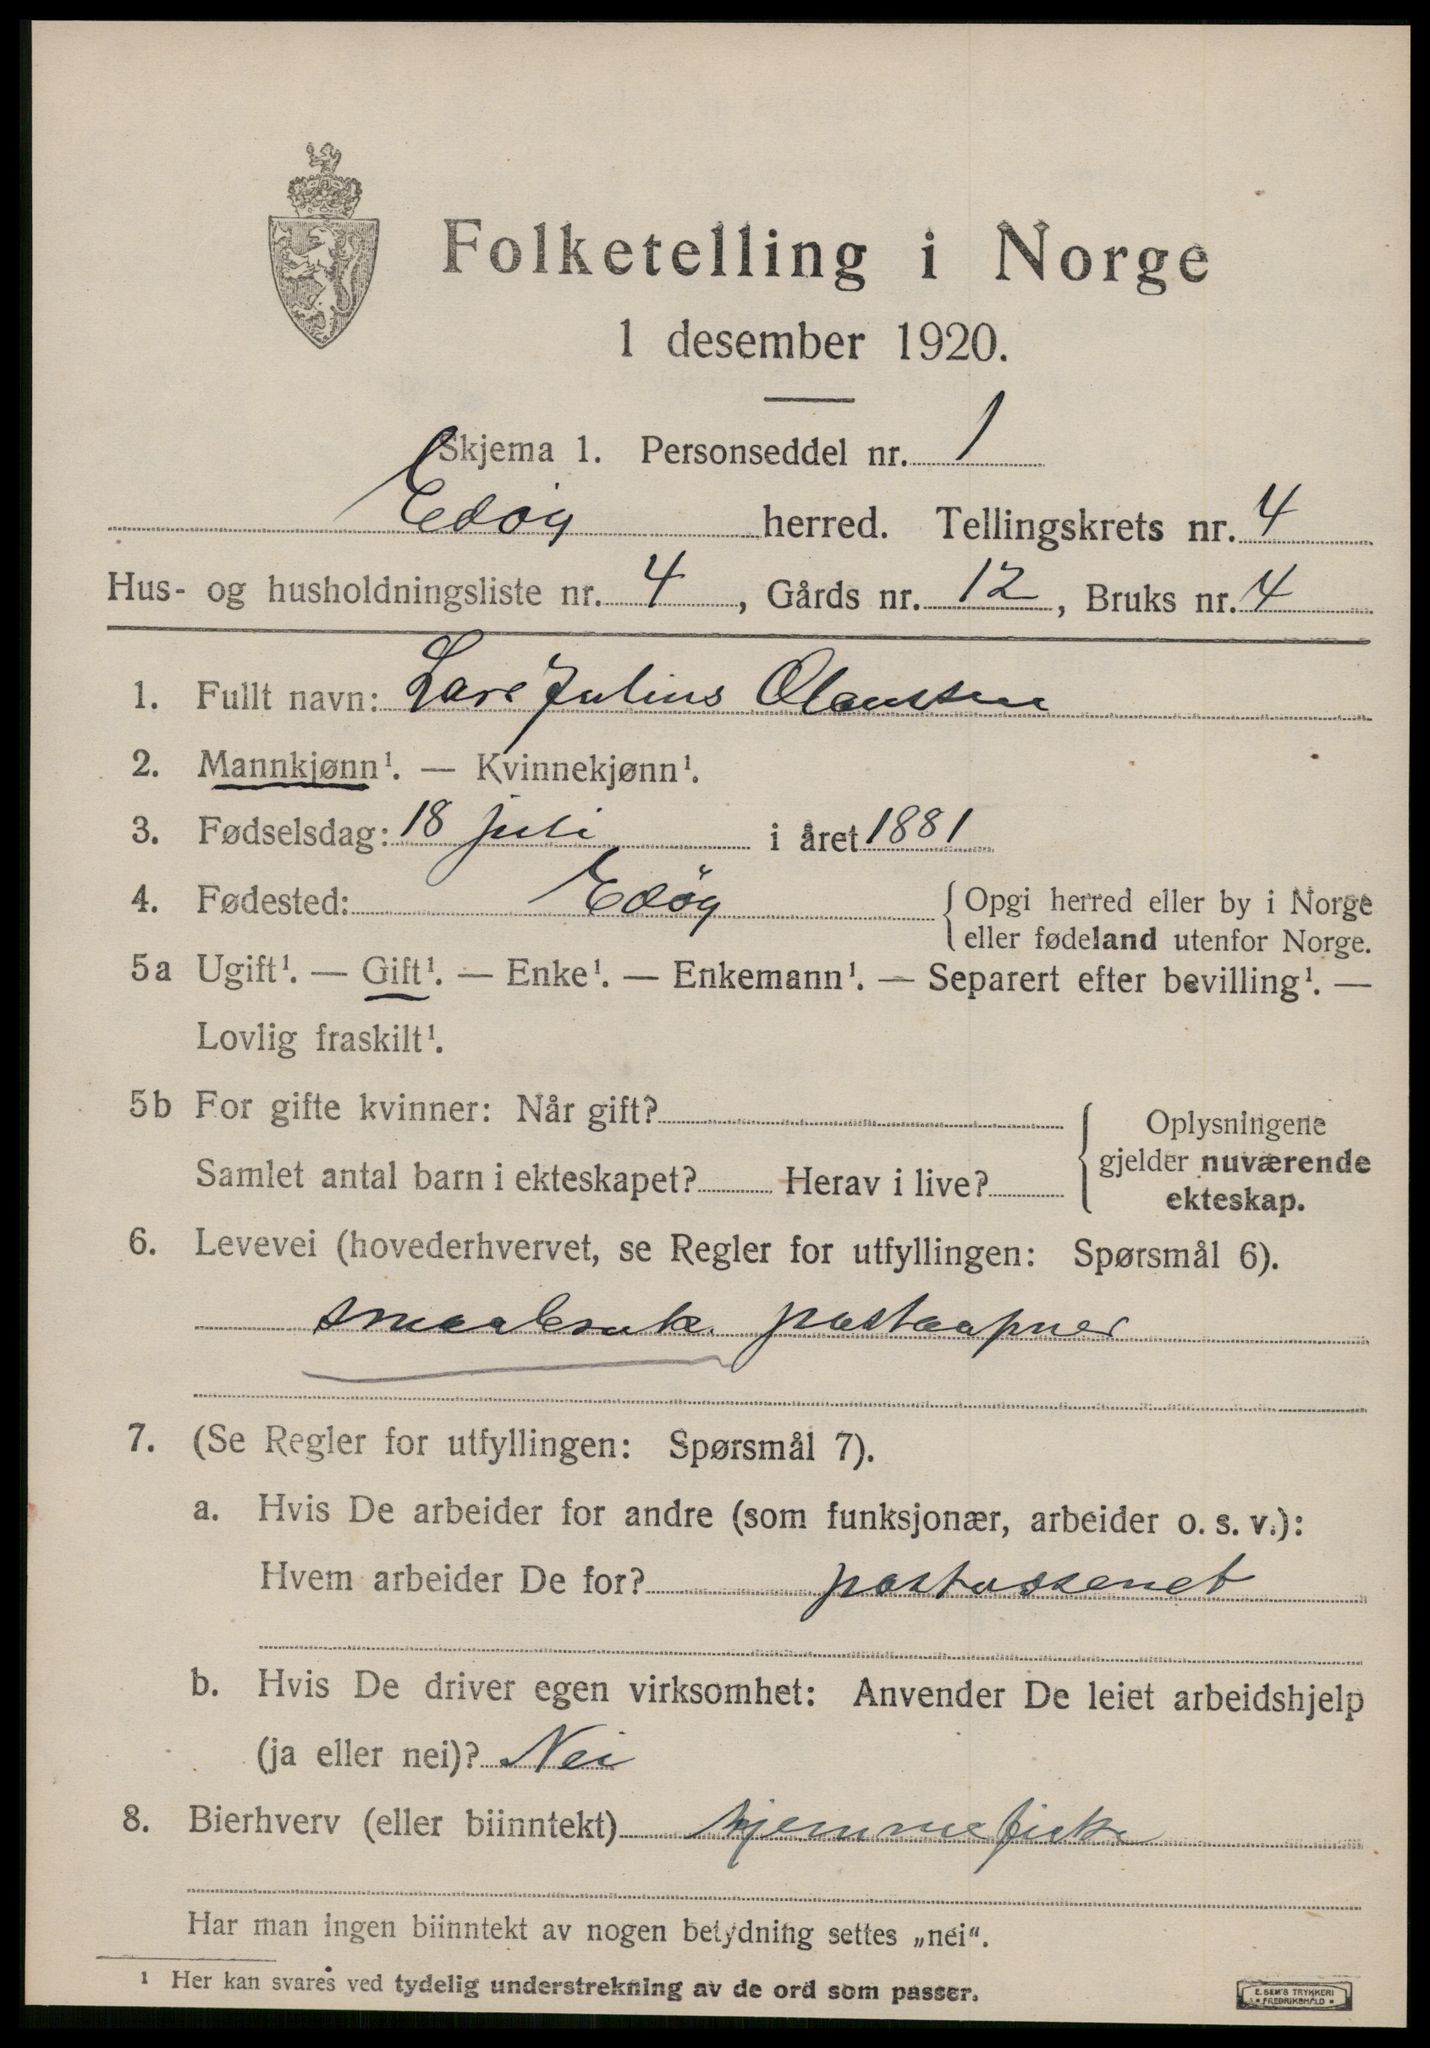 Folketelling i Norge
1 desember 1920.
Skjema 1. Personseddel nr. 1
Edöy herred. Tellingskrets nr. 4
Hus- og husholdningsliste nr. 4, Gårds nr. 12, Bruks nr. 4
1. Fullt navn: Lars Julius Olaussen
2. Mannkjønn¹. — Kvinnekjønn¹.
3. Fødselsdag: 18 juli i året 1881
4. Fødested: Edöy {Opgi herred eller by i Norge
eller fødeland utenfor Norge.
5a Ugift¹. — Gift¹. — Enke¹. — Enkemann¹. — Separert efter bevilling¹. —
Lovlig fraskilt¹.
5b For gifte kvinner: Når gift?
Samlet antal barn i ekteskapet? Herav i live?
Oplysningene
gjelder nuværende
ekteskap.
6. Levevei (hovederhvervet, se Regler for utfyllingen: Spørsmål 6).
smaabruk. postaapner
7. (Se Regler for utfyllingen: Spørsmål 7).
a. Hvis De arbeider for andre (som funksjonær, arbeider o. s. v.):
Hvem arbeider De for? postvæsenet
b. Hvis De driver egen virksomhet: Anvender De leiet arbeidshjelp
(ja eller nei)? Nei
8. Bierhverv (eller biinntekt) hjemmefiske
Har man ingen biinntekt av nogen betydning settes „nei“.
¹ Her kan svares ved tydelig understrekning av de ord som passer.
E. SEM'S TRYKKERI
FREDRIKSHALD